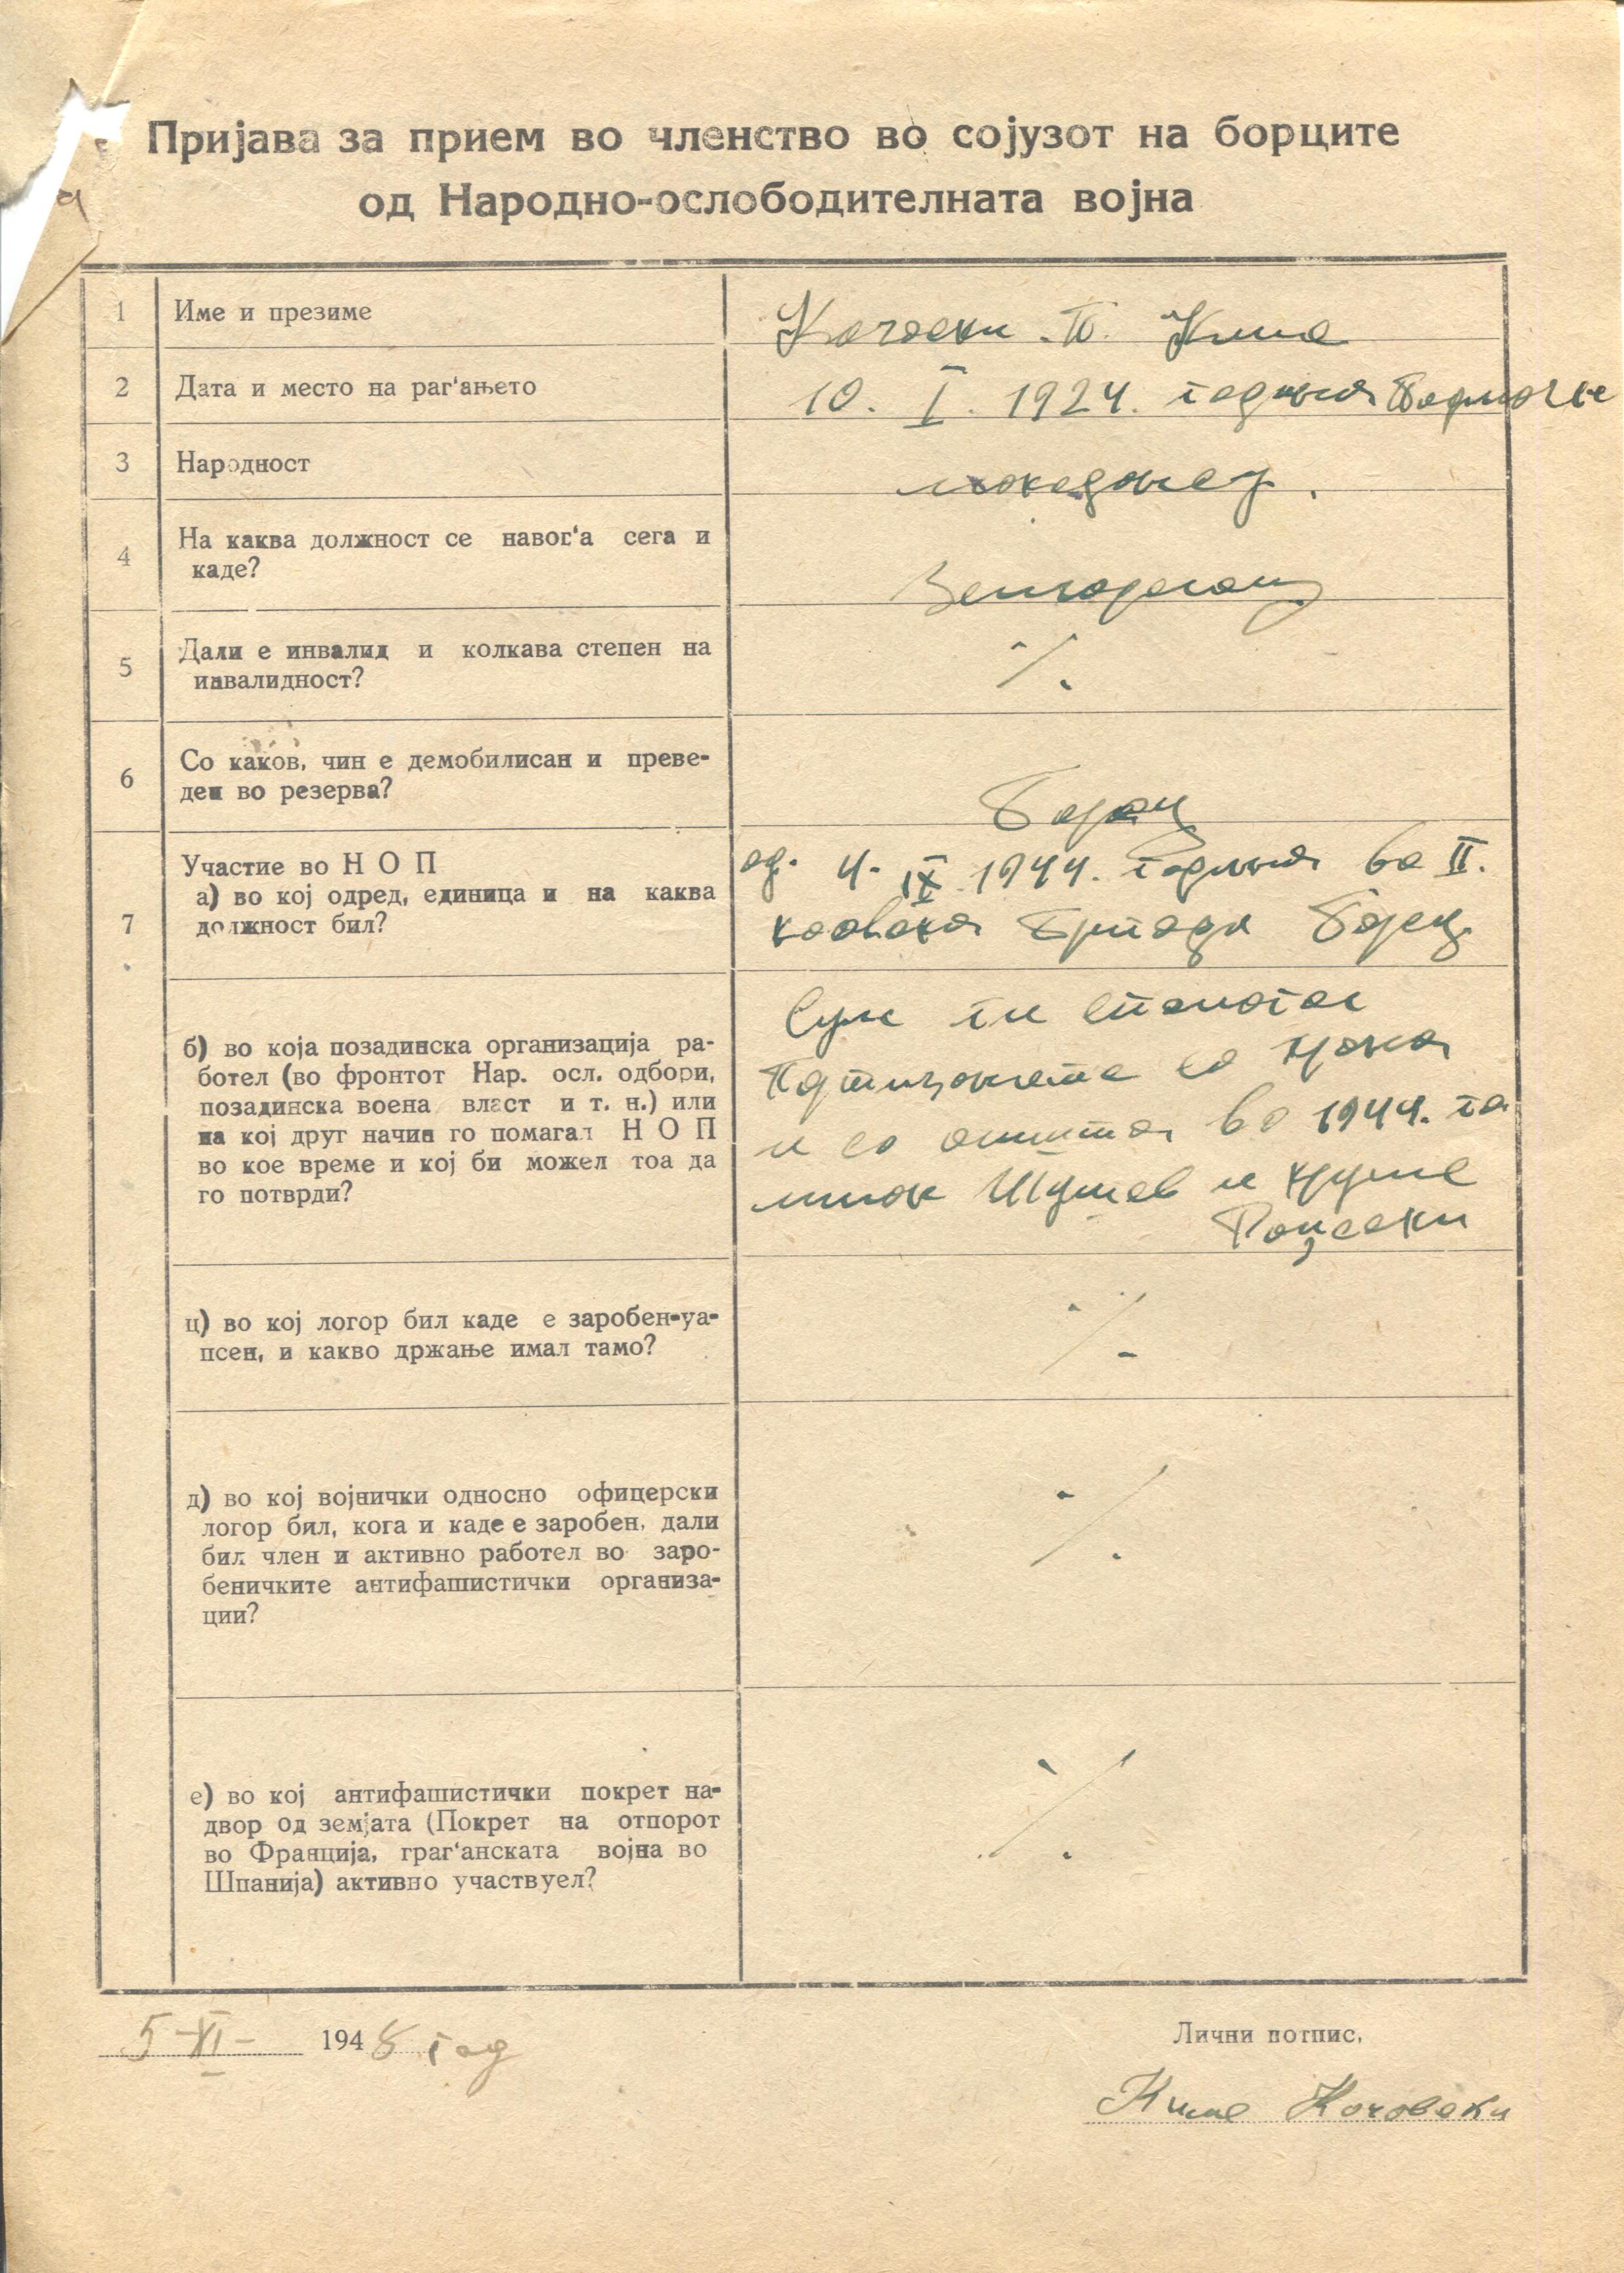 Пријава за прием во членство во сојузот на борците
од Народно-ослободителната војна
1 Име и презиме
Кочоски П. Киме
2 Дата и место на раг'ањето
10. I. 1924. година
3 Народност
македонец.
4 На каква должност се навог'а сега и
каде?
Земјоделац
5 Дали е инвалид и колкава степен на
инвалидност?
·/.
6 Со каков, чин е демобилисан и преве-
ден во резерва?
Борац
7 Участие во Н О П
а) во кој одред, единица и на каква
должност бил?
од. 4. IX 1944. година во II.
Бригада Борец
б) во која позадинска организација ра-
ботел (во фронтот Нар. осл. одбори,
позадинска воена власт и т. н.) или
на кој друг начин го помагал Н О П
во кое време и кој би можел тоа да
го потврди?
Сум ги
со храна
и со во 1944. го
Шумев и Круме
ц) во кој логор бил каде е заробен-уа-
псен, и какво држање имал тамо?
·/-
д) во кој војнички односно официерски
логор бил, кога и каде е заробен, дали
бил член и активно работел во заро-
беничките антифашистички организа-
ции?
-/.
е) во кој антифашистички покрет на-
двор од земјата (Покрет на отпорот
во Франција, граг'анската војна во
Шпанија) активно участвуел?
-/.
5-XI- 1948 год
Лични потпис,
Киме Кочовски